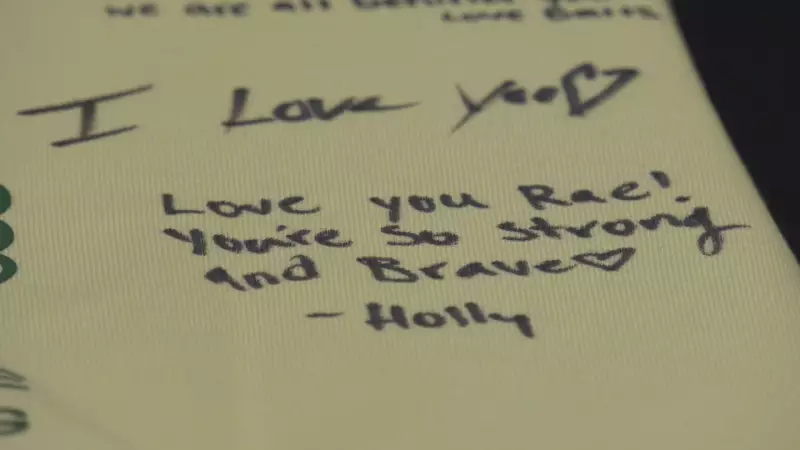 we are all behind you
Love
I Love you♡
Love you Rae!
You're so strong
and Brave♡
- Holly